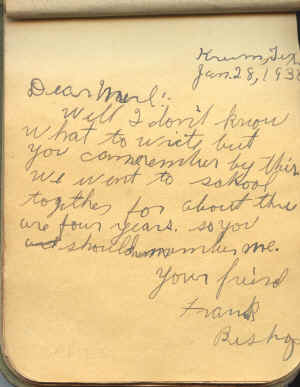 Krum, Tex.
Jan. 28, 193
Dear Merl:
Well I don't know
what to writ, but
you can remember by this
We went to school
together for about thre
are four years. so you
should remember me.
Your freind
Frank
Bishop